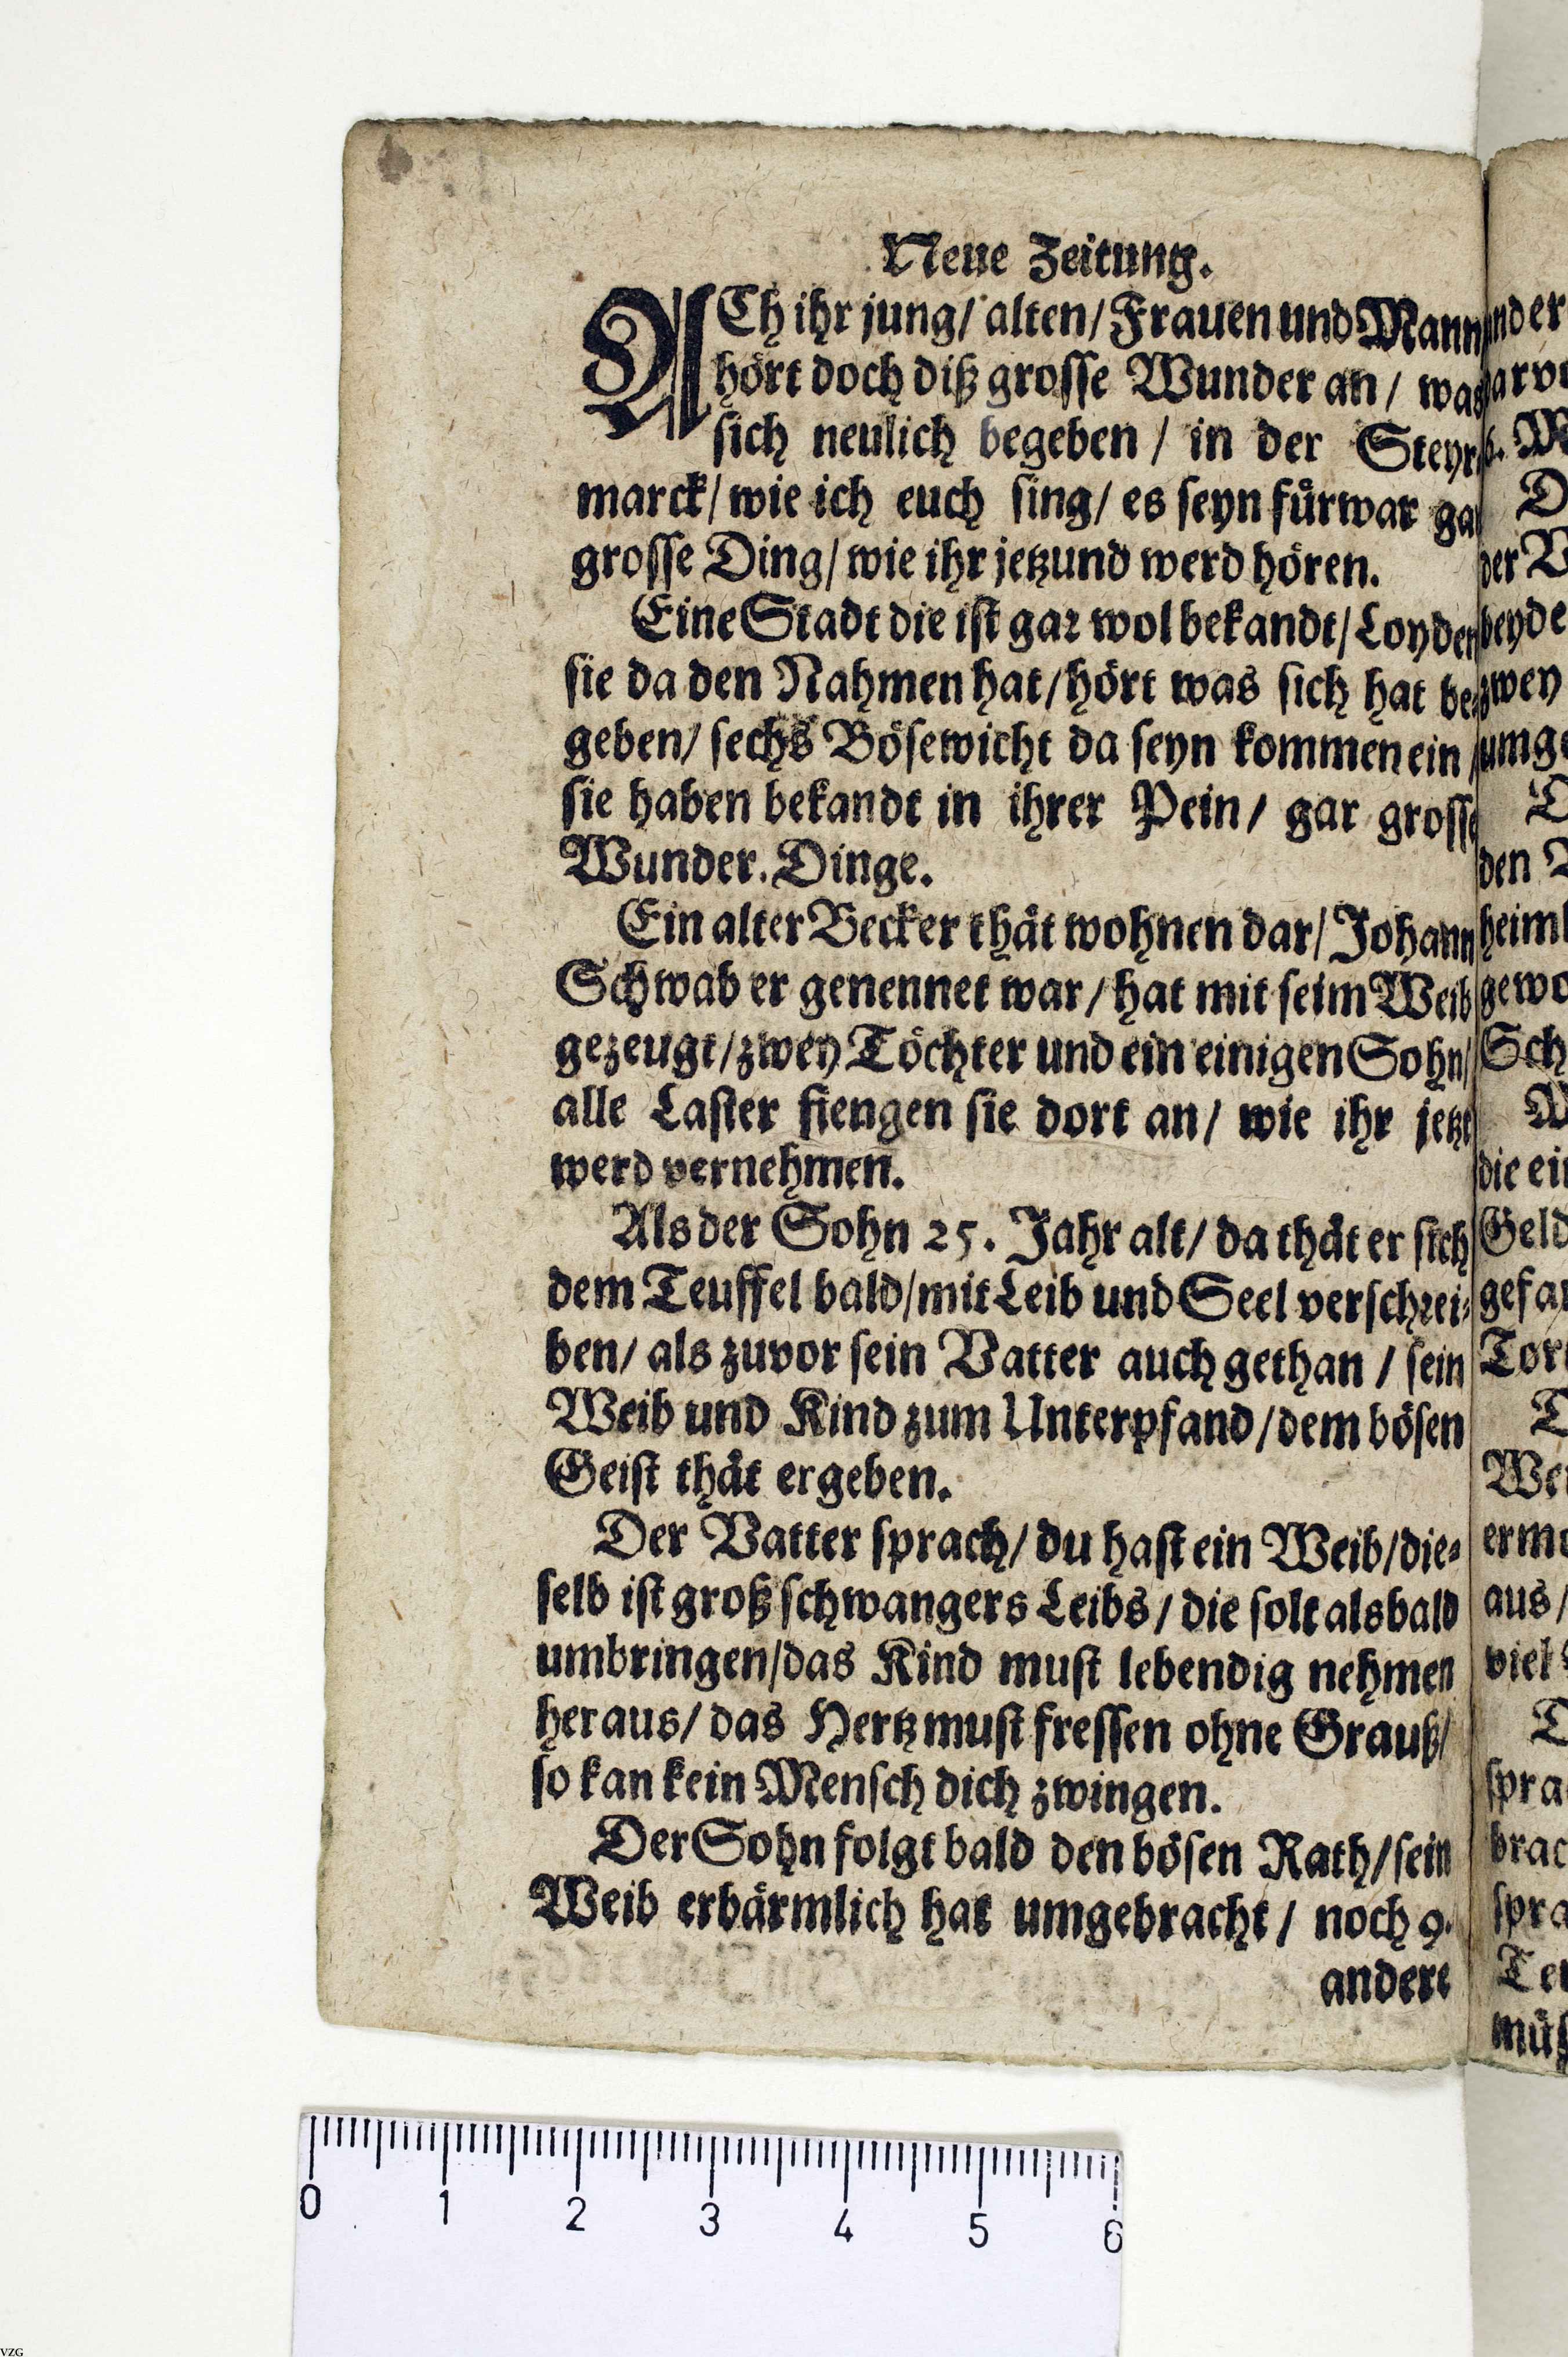 Neue Zeitung.
ACh ihr jung/ alten/ Frauen und Mann
hört doch diß grosse Wunder an/ was
sich neulich begeben / in der Steyr
marck/ wie ich euch sing/ es seyn fürwar ga
grosse Ding/ wie ihr jetzund werd hören.
Eine Stadt die ist gar wol bekandt/ Loyden
sie da den Nahmen hat/ hört was sich hat be-
geben/ sechs Bösewicht da seyn kommen ein /
sie haben bekandt in ihrer Pein/ gar grosse
Wunder-Dinge.
Ein alter Becker thät wohnen dar/ Johann
Schwab er genennet war/ hat mit seim Weib
gezeugt/ zwey Töchter und ein einigen Sohn/
alle Laster fiengen sie dort an/ wie ihr jetzt
werd vernehmen.
Als der Sohn 25. Jahr alt/ da thät er sich
dem Teuffel bald/ mit Leib und Seel verschrei-
ben/ als zuvor sein Vatter auch gethan / sein
Weib und Kind zum Unterpfand/ dem bösen
Geist thät ergeben.
Der Vatter sprach/ du hast ein Weib/ die-
selb ist groß schwangers Leibs/ die solt alsbald
umbringen/ das Kind must lebendig nehmen
heraus/ das Hertz must fressen ohne Grauß/
so kan kein Mensch dich zwingen.
Der Sohn folgt bald den bösen Rath/ sein
Weib erbärmlich hat umgebracht/ noch 9.
andere
0 1 2 3 4 5 6
VZG